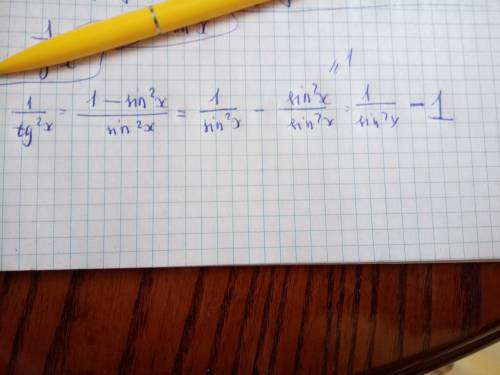 "1
1/tg²x = (1 - sin²x)/(sin²x) = 1/(sin²x) - (sin²x)/(sin²x) = 1/(sin²x) - 1